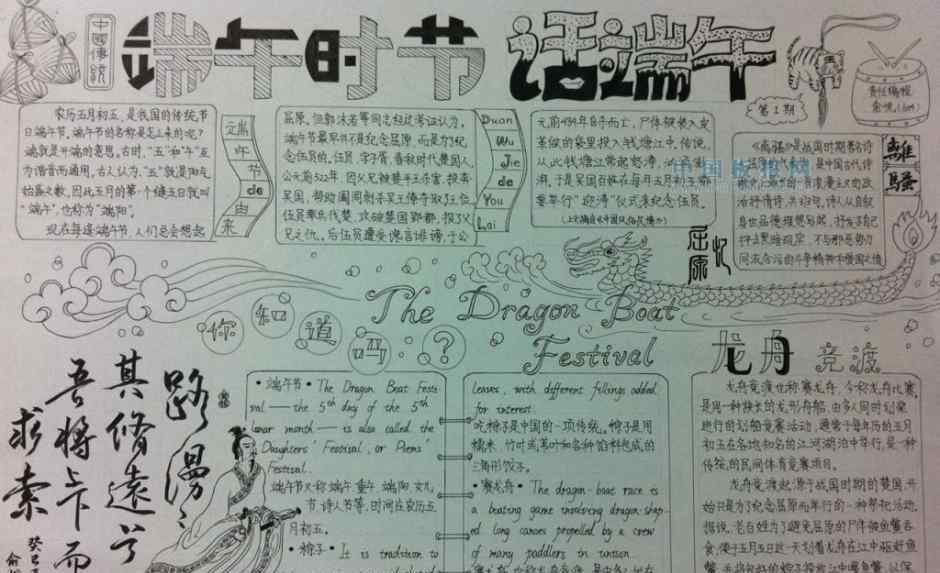 中國傳統
端午时节 话端午
第1期
责任编辑
农历五月初五,是我国的传统节
日端午节,端午节的名称是怎么来的呢?
端就是开端的意思。古时,“五”和“午”互
为谐音而通用。古人认为,“五”就是阳气
始盛之数,因此五月的第一个逢五日就叫
“端午”,也称为“端阳”。
现在每逢端午节,人们总会想起
端
午
节
de
由
来
屈原。但郭沫若等同志经过考证认为,
端午节最早并不是纪念屈原,而是为纪
念伍员的。伍员,字子胥,春秋时代楚国人,
公元前522年,因父兄被楚平王杀害,投奔
吴国,帮助阖闾刺杀王僚夺取王位,
伍员率兵伐楚,攻破楚国郢都,报了父
兄之仇。后伍员遭受谗言诽谤,于公
Duan
Wu
Jie
de
You
Lai
元前484年自杀而亡,尸体被装入皮
革做的袋里投入钱塘江中。传说,
从此钱塘江常起怒涛,
潮。于是吴国百姓在每年五月初五都
要举行“迎涛”仪式来纪念伍员。
離騷
《离骚》是战国时期著名诗
是中国古代诗
忆屈原
The Dragon Boat
Festival
你知道吗?
路漫漫
其修遠兮
吾將上下而
求索
癸巳
• 端午节 • The Dragon Boat Festi
val — the 5th day of the 5th
lunar month — is also called the
Daughters' Festival, or Poems'
Festival.
端午节又称端午,重午,端阳,女儿
节,诗人节等,时间在农历五
月初五。
• 粽子 • It is tradition to
leaves, with different fillings added
for interest.
吃粽子是中国的一项传统。粽子是用
糯米,竹叶或苇叶和各种馅料包成的
三角形饺子。
• 赛龙舟 • The dragon-boat race is
a boating game involving dragon-shap
ed long canoes propelled by a crew
of many paddlers in unison.
龙舟竞渡
龙舟竞渡也称赛龙舟,今称龙舟比赛,
是用一种狭长的龙形舟船,由多人同时划桨
进行的划船竞赛活动,通常于每年历的五月
初五在各地知名的江河湖泊中举行,是一种
传统的民间体育竞赛项目。
龙舟竞渡起源于战国时期的楚国,开
始只是为了纪念屈原而举行的一种祭祀活动。
据说,老百姓为了避免屈原的尸体被鱼蟹吞
食,便于五月五日这一天划着龙舟在江中驱赶鱼